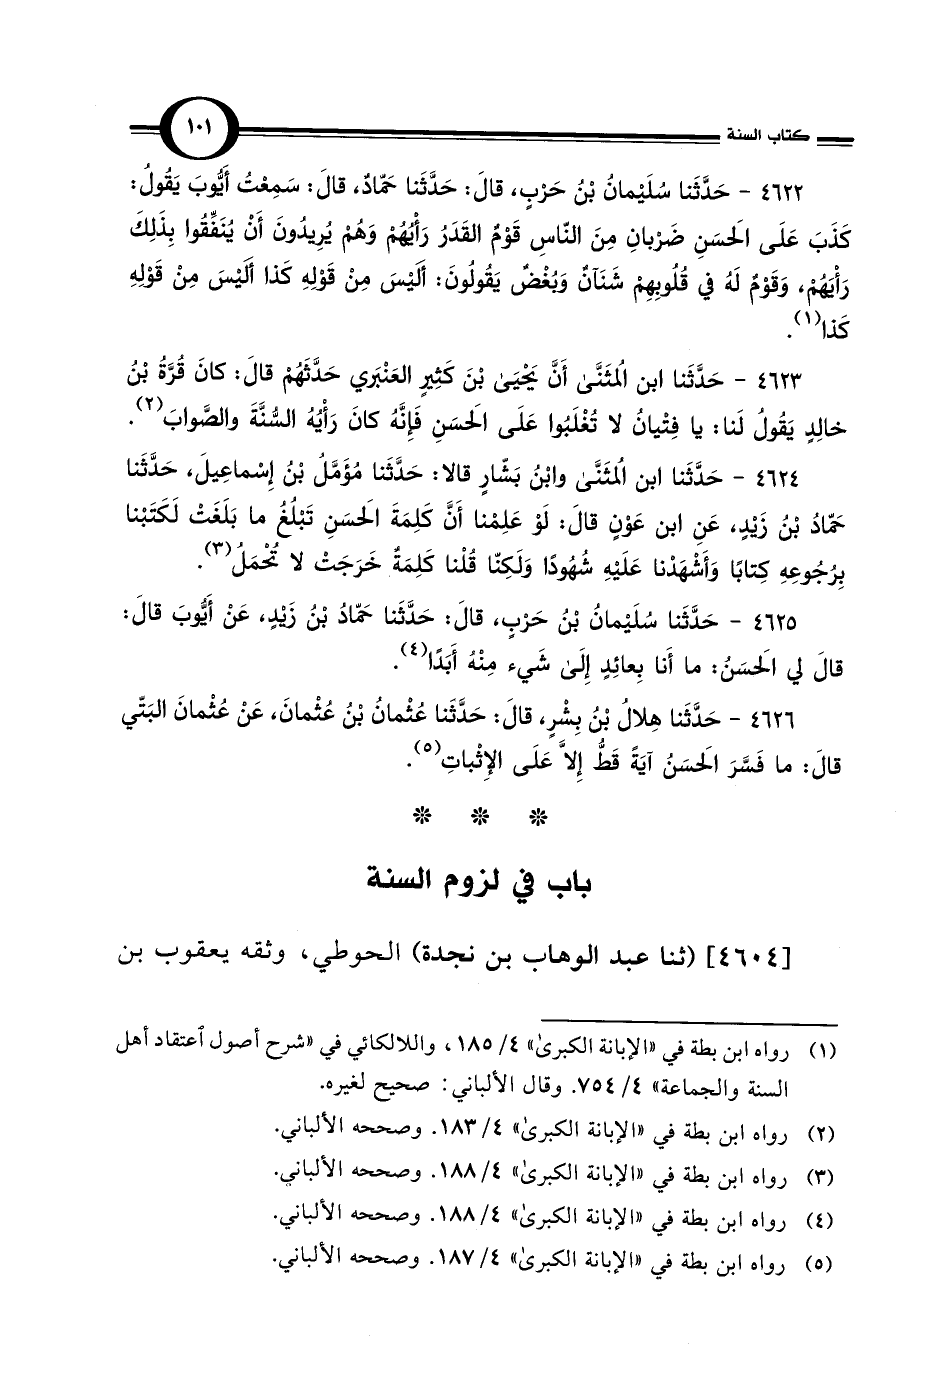 كتاب السنة ١٠١
٤٦٢٢ - حَدَّثَنا سُلَيْمانُ بْنُ حَرْبٍ، قالَ: حَدَّثَنا حَمّادٌ، قالَ: سَمِعْتُ أَيُّوبَ يَقُولُ:
كَذَبَ عَلَى الحَسَنِ ضَرْبانِ مِنَ النّاسِ قَوْمٌ القَدَرُ رَأْيُهُمْ وَهُمْ يُرِيدُونَ أَنْ يُنَفِّقُوا بِذَلِكَ
رَأْيَهُمْ، وَقَوْمٌ لَهُ في قُلُوبِهِمْ شَنَآنٌ وَبُغْضٌ يَقُولُونَ: أَلَيْسَ مِنْ قَوْلِهِ كَذا أَلَيْسَ مِنْ قَوْلِهِ
كَذا(١).
٤٦٢٣ - حَدَّثَنا ابن الُمثَنَّى أَنَّ يَحْيَى بْنَ كَثِيرٍ العَنْبَري حَدَّثَهُمْ قالَ: كانَ قُرَّةُ بْنُ
خالِدٍ يَقُولُ لَنا: يا فِتْيانُ لا تُغْلَبُوا عَلَى الحَسَنِ فَإِنَّهُ كانَ رَأْيُهُ السُّنَّةَ والصَّوابَ(٢).
٤٦٢٤ - حَدَّثَنا ابن الُمثَنَّى وابْنُ بَشّارٍ قالا: حَدَّثَنا مُؤَمَّلُ بْنُ إِسْماعِيلَ، حَدَّثَنا
حَمّادُ بْنُ زَيْدٍ، عَنِ ابن عَوْنٍ قالَ: لَوْ عَلِمْنا أَنَّ كَلِمَةَ الحَسَنِ تَبْلُغُ ما بَلَغَتْ لَكَتَبْنا
بِرُجُوعِهِ كِتابًا وَأَشْهَدْنا عَلَيْهِ شُهُودًا وَلَكِنّا قُلْنا كَلِمَةٌ خَرَجَتْ لا تُحْمَلُ(٣).
٤٦٢٥ - حَدَّثَنا سُلَيْمانُ بْنُ حَرْبٍ، قالَ: حَدَّثَنا حَمّادُ بْنُ زَيْدٍ، عَنْ أَيُّوبَ قالَ:
قالَ لي الَحسَنُ: ما أَنا بِعائِدٍ إِلَى شَيء مِنْهُ أَبَدًا(٤).
٤٦٢٦ - حَدَّثَنا هِلالُ بْنُ بِشْرٍ، قالَ: حَدَّثَنا عُثْمانُ بْنُ عُثْمانَ، عَنْ عُثْمانَ البَتّي
قالَ: ما فَسَّرَ الَحسَنُ آيَةً قَطُّ إِلاَّ عَلَى الإِثْباتِ(٥).
* * *
باب في لزوم السنة
[٤٦٠٤] (ثنا عبد الوهاب بن نجدة) الحوطي، وثقه يعقوب بن
(١) رواه ابن بطة في «الإبانة الكبرىٰ» ٤/ ١٨٥، واللالكائي في «شرح أصول ٱعتقاد أهل
السنة والجماعة» ٤/ ٧٥٤. وقال الألباني: صحيح لغيره.
(٢) رواه ابن بطة في «الإبانة الكبرىٰ» ٤/ ١٨٣. وصححه الألباني.
(٣) رواه ابن بطة في «الإبانة الكبرىٰ» ٤/ ١٨٨. وصححه الألباني.
(٤) رواه ابن بطة في «الإبانة الكبرىٰ» ٤/ ١٨٨. وصححه الألباني.
(٥) رواه ابن بطة في «الإبانة الكبرىٰ» ٤/ ١٨٧. وصححه الألباني.